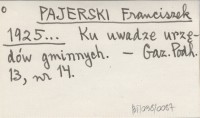 PAJERSKI Franciszek
1925... Ku uwadze urzę-
dów gminnych. — Gaz. Podh.
13, nr 14.